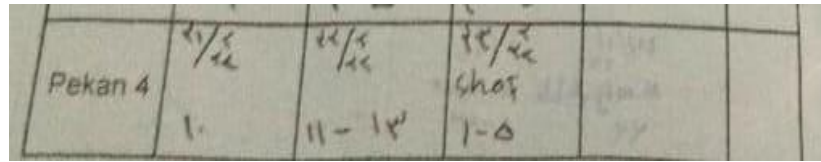 Pekan 4
٢١/٢ ٢٢
١٠
٢٢/٢ ٢٢
١١ - ١٣
٢٣/٢ ٢٢
١-٥